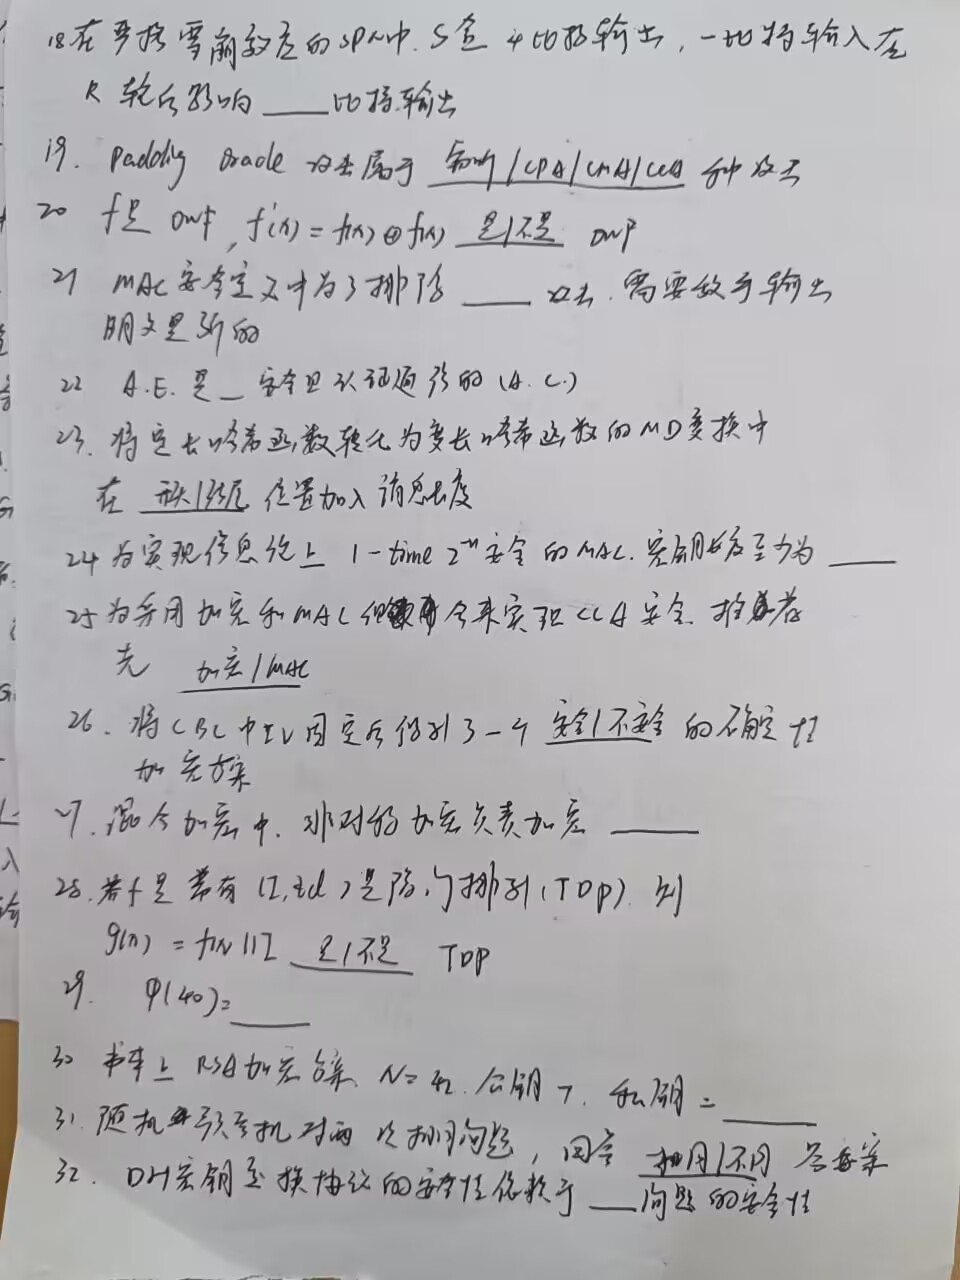 18 在严格雪崩效应的SPN中. S盒 4比特输出, 一比特输入在
R 轮后影响 ____ 比特输出
19. Padding Oracle 攻击属于 窃听/CPA/CMA/CCA 种攻击
20 f是 OWF, f'(x) = f(x) ⊕ f(x) 是/不是 OWF
21 MAC安全定义中为了排除 ____ 攻击. 需要敌手输出
明文是新的
22 A.E. 是 __ 安全且认证通信的 (A.C.)
23. 将定长哈希函数转化为变长哈希函数的MD变换中
在 开头/结尾 位置加入消息长度
24 为实现信息论上 1-time 2⁻ⁿ安全的MAC. 密钥长度至少为 ____
25 为采用加密和MAC 组合来实现CCA安全. 推荐
先 加密/MAC
26. 将CBC中IV固定后得到了一个 安全/不安全 的确定性
加密方案
27. 混合加密中. 非对称加密负责加密 ____
28. 若f是带有(I, td)是陷门排列(TDP). 则
g(x) = f(x)||I 是/不是 TDP
29. φ(40)= ____
30 书本上 RSA加密方案. N= 公钥 7. 私钥 = ____
31. 随机预言机对两次相同问题, 回答 相同/不同 答案
32. DH密钥交换协议的安全性依赖于 ____ 问题的安全性